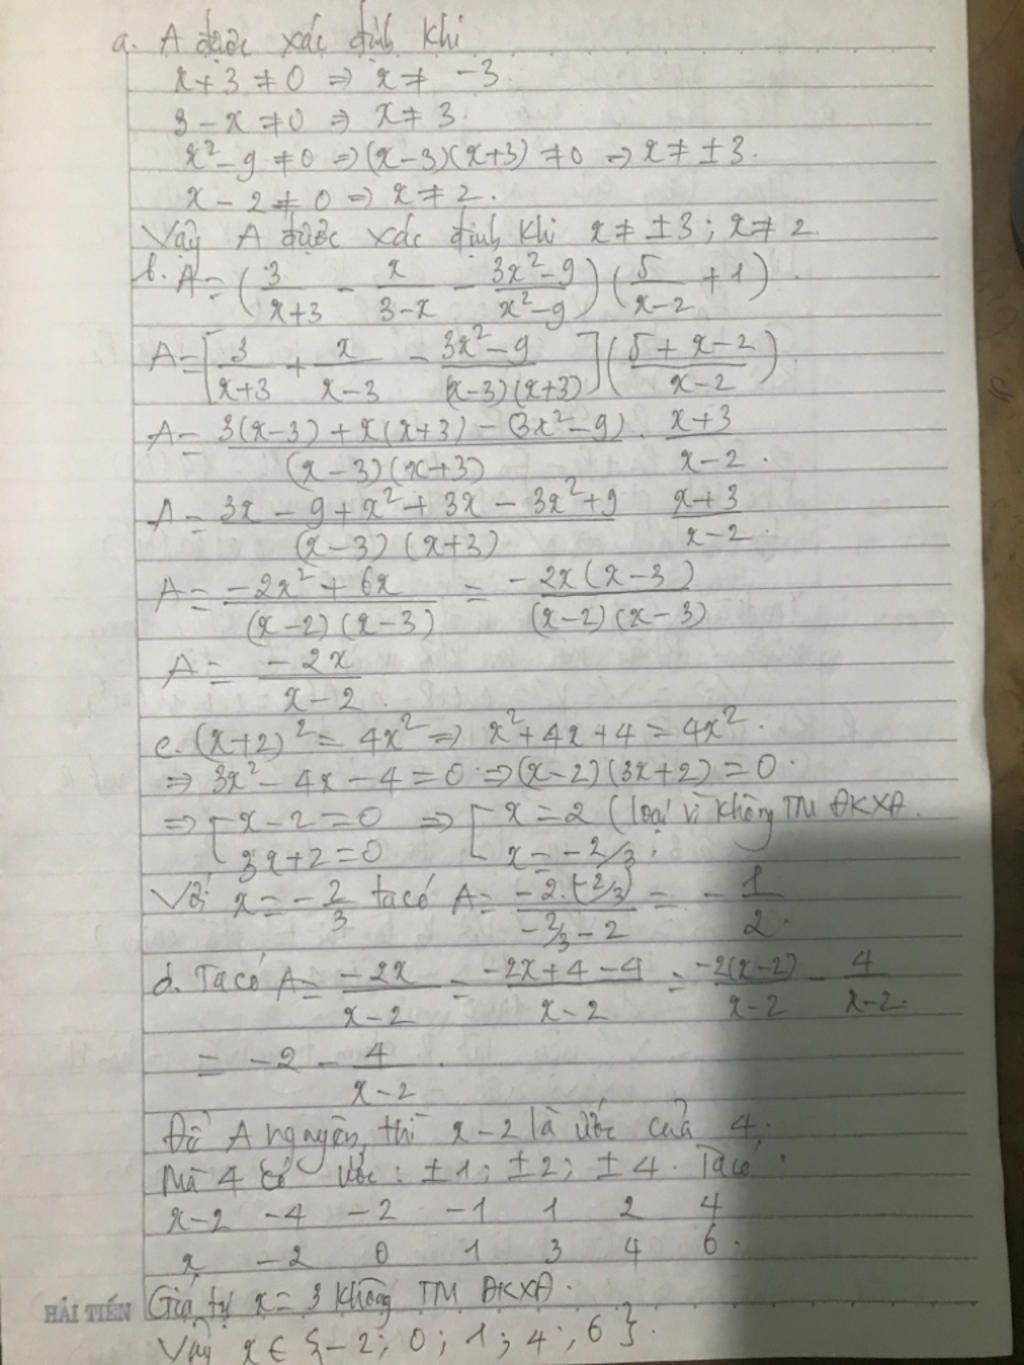 a. A được xác định khi
x + 3 ≠ 0 ⇒ x ≠ -3.
3 - x ≠ 0 ⇒ x ≠ 3.
x² - 9 ≠ 0 ⇒ (x-3)(x+3) ≠ 0 ⇒ x ≠ ±3.
x - 2 ≠ 0 ⇒ x ≠ 2.
Vậy A được xác định khi x ≠ ±3; x ≠ 2.
b. A = (3/(x+3) - x/(3-x) - (3x²-9)/(x²-9)) (5/(x-2) + 1).
A = [3/(x+3) + x/(x-3) - (3x²-9)/((x-3)(x+3))] ((5+x-2)/(x-2)).
A = (3(x-3) + x(x+3) - (3x²-9))/((x-3)(x+3)) . (x+3)/(x-2).
A = (3x - 9 + x² + 3x - 3x² + 9)/((x-3)(x+3)) (x+3)/(x-2).
A = (-2x² + 6x)/((x-2)(x-3)) = -2x(x-3)/((x-2)(x-3))
A = -2x/(x-2).
c. (x+2)² = 4x² ⇒ x² + 4x + 4 = 4x².
⇒ 3x² - 4x - 4 = 0 ⇒ (x-2)(3x+2) = 0.
⇒ [x - 2 = 0 ⇒ [x = 2 (loại vì không TM ĐKXĐ.
3x + 2 = 0 x = -2/3.
Với x = -2/3 ta có A = (-2.(-2/3))/(-2/3 - 2) = -1/2.
d. Ta có A = -2x/(x-2) = (-2x+4-4)/(x-2) = -2(x-2)/(x-2) - 4/(x-2).
= -2 - 4/(x-2).
Để A nguyên, thì x-2 là ước của 4.
Mà 4 có ước: ±1; ±2; ±4. Ta có:
x-2 -4 -2 -1 1 2 4
x -2 0 1 3 4 6.
Giá trị x = 3 không TM ĐKXĐ.
HẢI TIẾN
Vậy x ∈ {-2; 0; 1; 4; 6}.